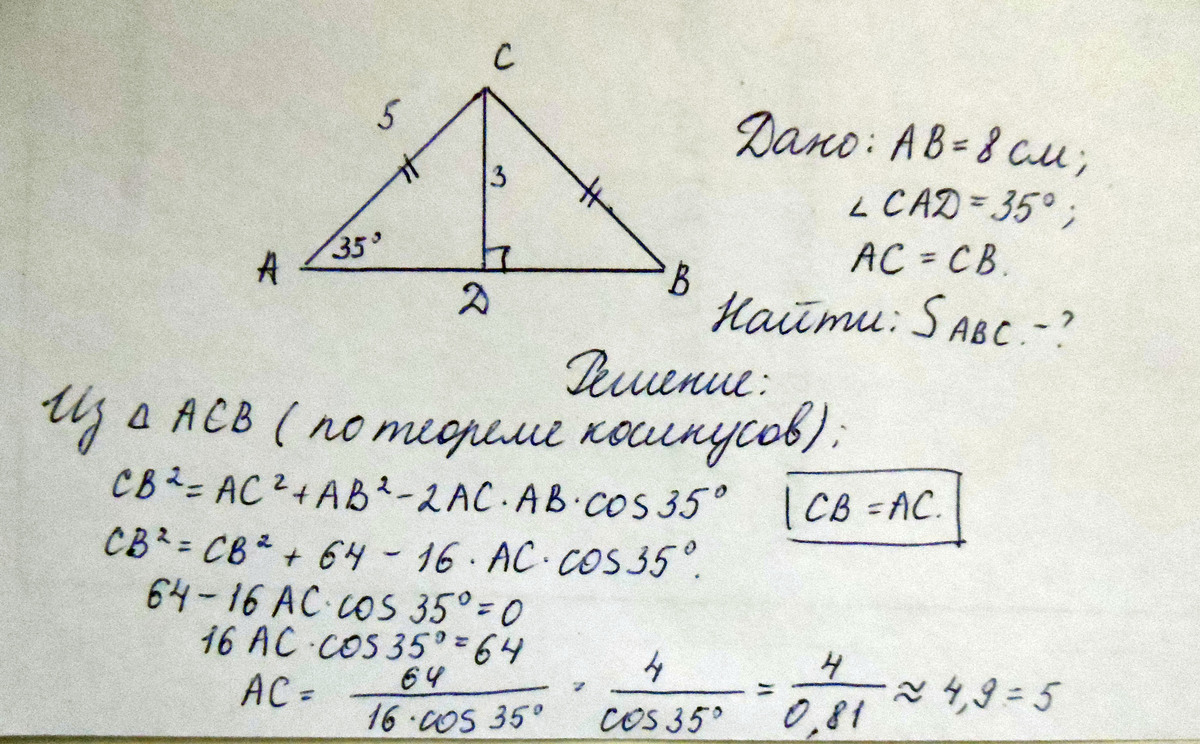 C
5
3
35°
A
D
B
Дано: AB = 8 см;
∠ CAD = 35°;
AC = CB.
Найти: S ABC. - ?
Решение:
Из Δ ACB (по теореме косинусов):
CB² = AC² + AB² - 2AC · AB · cos 35°
CB = AC.
CB² = CB² + 64 - 16 · AC · cos 35°.
64 - 16 AC · cos 35° = 0
16 AC · cos 35° = 64
AC = 64 / 16 · cos 35° = 4 / cos 35° = 4 / 0,81 ≈ 4,9 = 5